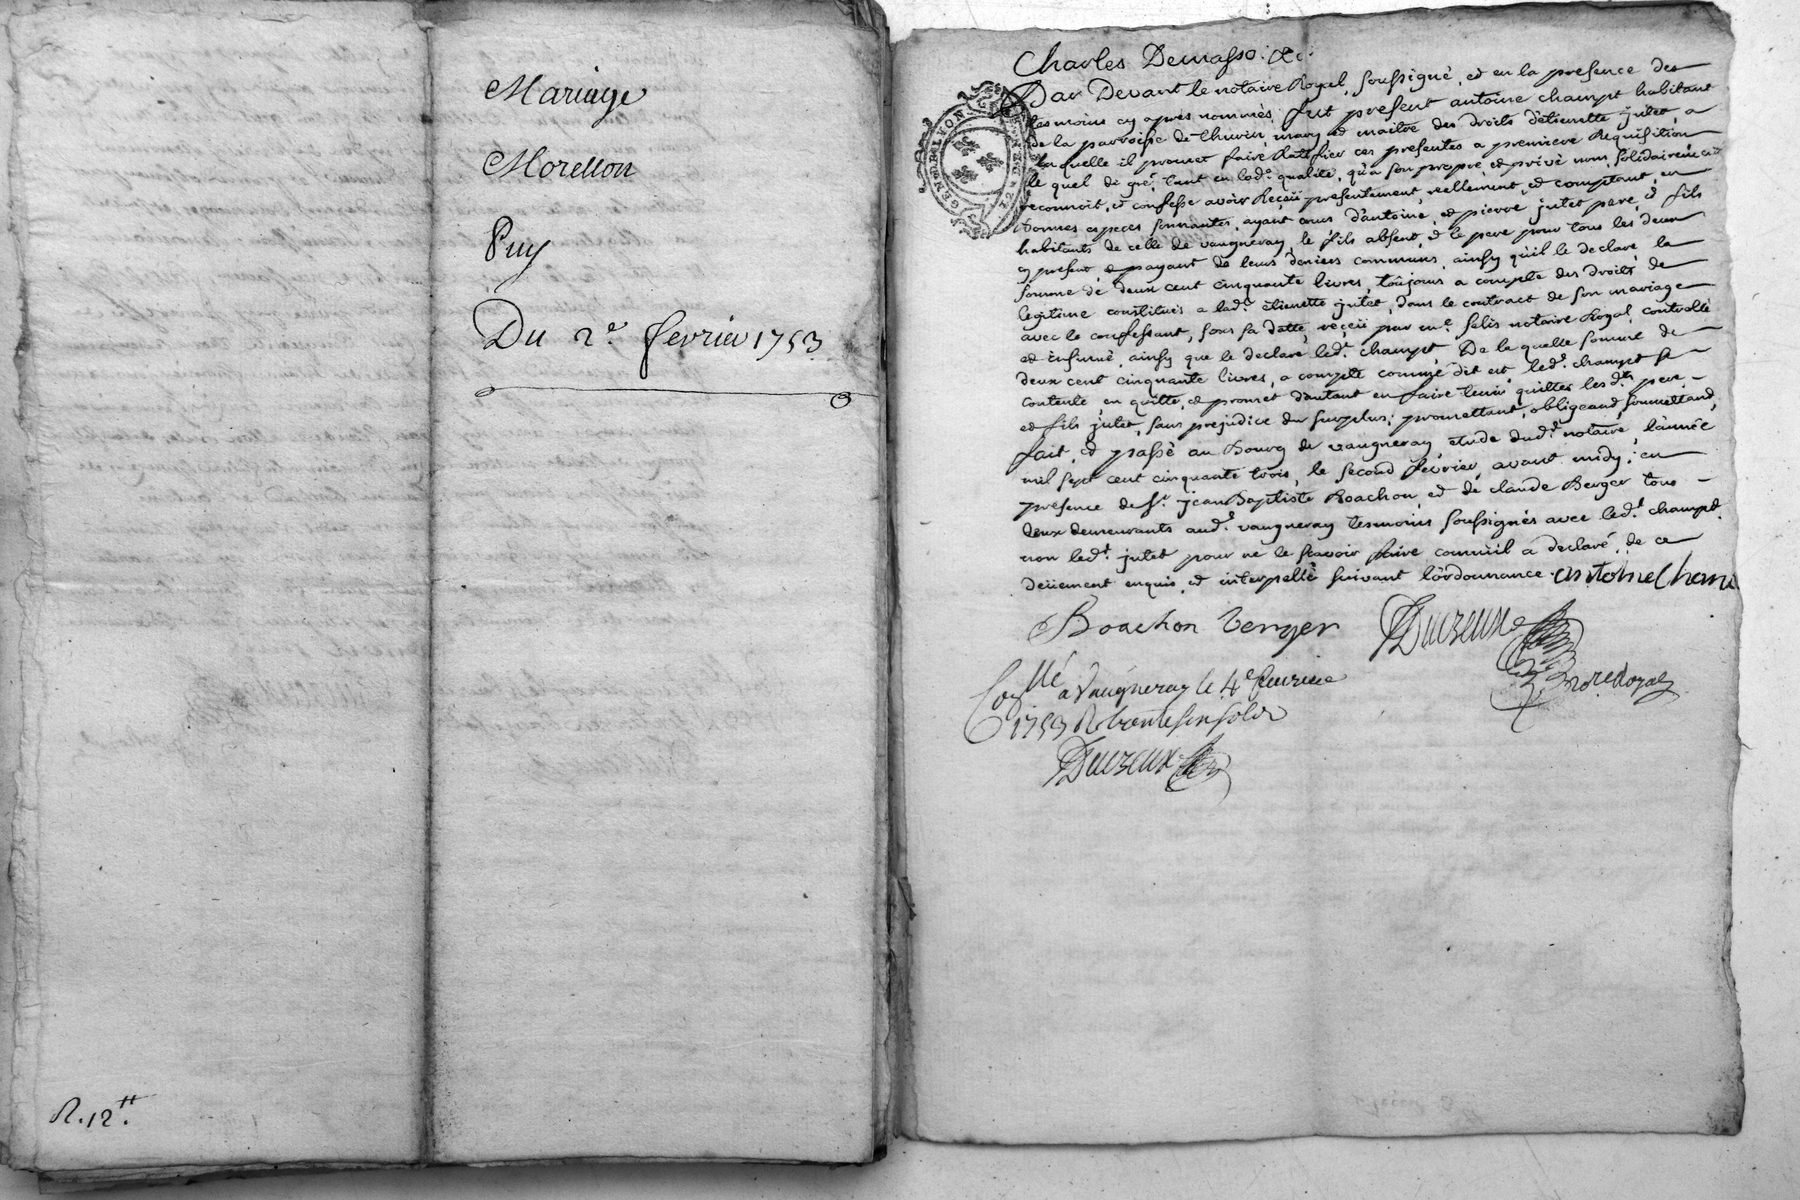 Mariage
Morellon
Puy
Du 2e. fevrier 1753
R. 12tt.
Charles Demasso: &c:
GEN DE LYON
Par Devant le notaire Royal, soussigné, et en la presence des
tesmoins cy apres nommés, fut present antoine champt habitant
de la parroisse de Thurin, mary et maitre des droits d'etiennette jutet, a
laquelle il promet faire Rattifier ces presentes a premiere Requisition
le quel de gré, tant en lade. qualité, qu'a son propre, et privé nom, solidairement
reconnoit, et confesse avoir Reçeü presentement, reellement, et comptant, en
bonnes especes sonnantes, ayant cours d'antoine, et pierre jutet pere, et fils
habitants de celle de vaugneray, le fils absent, et le pere pour tous les deux
cy present, et payant de leurs deniers communs, ainsy qu'il le declare, la
somme de deux cent cinquante livres, toûjours a compte des droits de
legitime constitués a lade. etienette jutet, dans le contract de son mariage
avec le confessant, sous sa datte, reçeü par me. salis notaire Royal, controllé
et insinué, ainsy que le declare led. champt, De la quelle somme de
deux cent cinquante livres, a compte comme dit est led. champt se
contente en quitte, et promet d'autant en faire tenir quittes lesdts. pere
et fils jutet, sans prejudice du surplus; promettant, obligeand, soumettand,
fait, et passé au Bourg de vaugneray etude dud. notaire, l'année
mil sept cent cinquante trois, le second fevrier, avant midy; en
presence de sr. jean Baptiste Boachon, et de claude Berger tous
deux demeurants aud. vaugneray tesmoins soussignés avec led. champt.
non led. jutet pour ne le sçavoir faire comm'il a declaré, de ce
deüement enquis, et interpellé suivant l'ordonnance. antoine Cham
Boachon Berger Ducreux
nore Royal
Conllé a Vaugneray le 4e fevrier
1753 R trente six sols
Ducreux